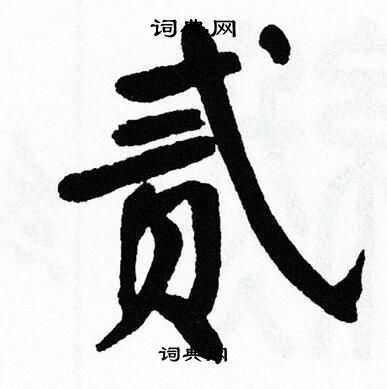 词典网
贰
词典网